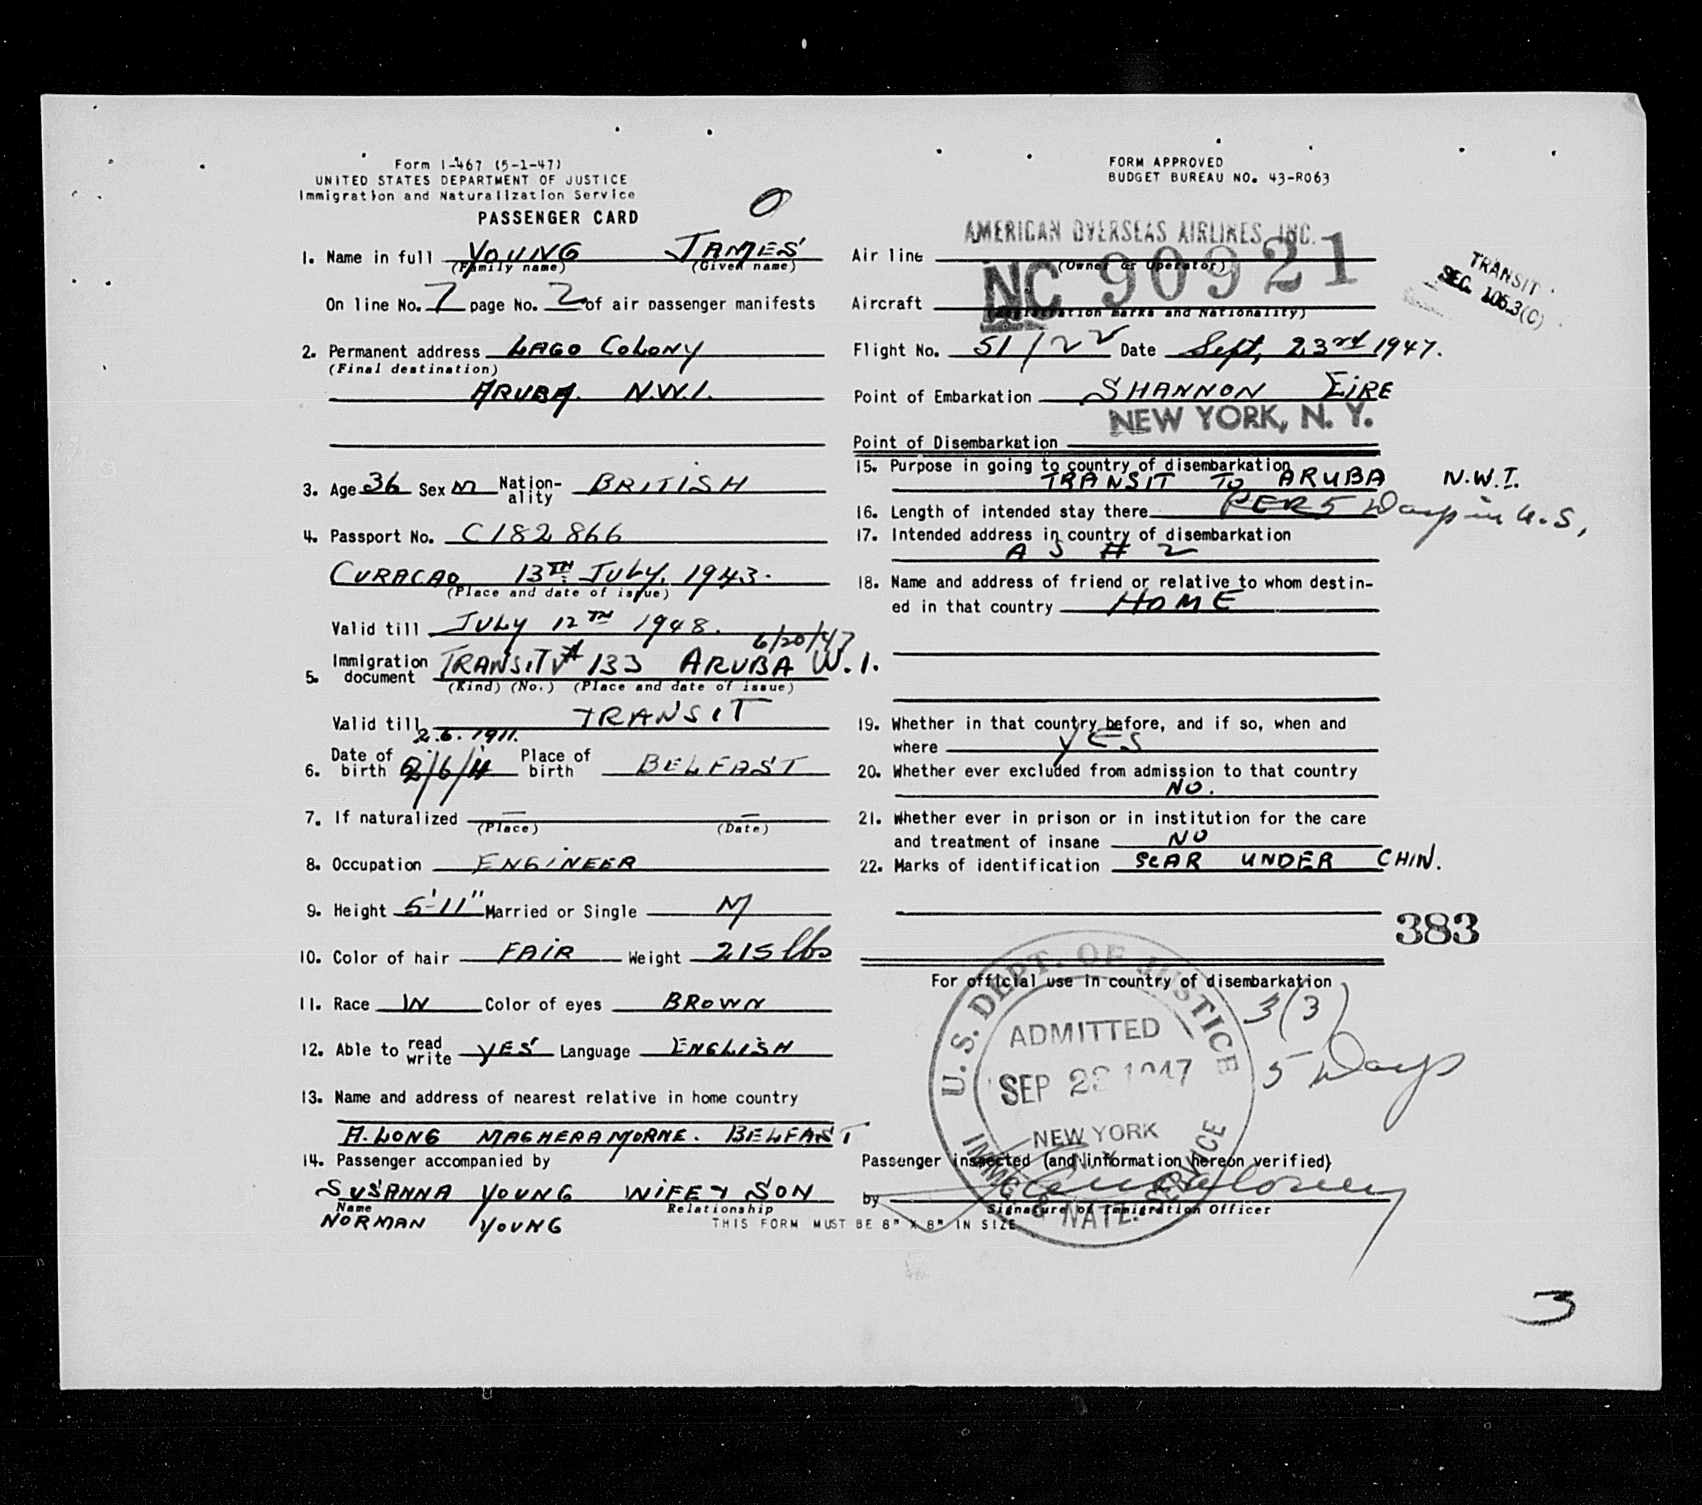 Form I-467 (5-1-47)
UNITED STATES DEPARTMENT OF JUSTICE
Immigration and Naturalization Service
PASSENGER CARD
1. Name in full YOUNG JAMES
(Family name) (Given name)
On line No. 7 page No. 2 of air passenger manifests
2. Permanent address LAGO COLONY
(Final destination)
ARUBA. N.W.I.
3. Age 36 Sex M Nation-ality BRITISH
4. Passport No. C182866
CURACAO 13TH JULY, 1943.
(Place and date of issue)
Valid till JULY 12TH 1948.
6/20/47
5. Immigration document TRANSIT V# 133 ARUBA W.I.
(Kind) (No.) (Place and date of issue)
Valid till TRANSIT
2.6.1911.
6. Date of birth 2/6/11 Place of birth BELFAST
7. If naturalized — —
(Place) (Date)
8. Occupation ENGINEER
9. Height 5'-11" Married or Single M
10. Color of hair FAIR Weight 215 lbs
11. Race Color of eyes BROWN
12. Able to read write YES Language ENGLISH
13. Name and address of nearest relative in home country
A. LONG MAGHERAMORNE. BELFAST
14. Passenger accompanied by
SUSANNA YOUNG WIFE & SON
Name Relationship
NORMAN YOUNG
THIS FORM MUST BE 8" X 8" IN SIZE
FORM APPROVED
BUDGET BUREAU NO. 43-R063
AMERICAN OVERSEAS AIRLINES, INC.
Air line
(Owner or Operator)
NC 90921
Aircraft
(Registration marks and Nationality)
TRANSIT
SEC. 106.3(C)
Flight No. 51/22 Date Sept, 23rd 1947.
Point of Embarkation SHANNON EIRE
NEW YORK, N. Y.
Point of Disembarkation
15. Purpose in going to country of disembarkation
TRANSIT TO ARUBA N.W.I.
16. Length of intended stay there PER 5 Days in U.S,
17. Intended address in country of disembarkation
AS # 2
18. Name and address of friend or relative to whom destin-
ed in that country HOME
19. Whether in that country before, and if so, when and
where YES
20. Whether ever excluded from admission to that country
NO.
21. Whether ever in prison or in institution for the care
and treatment of insane NO
22. Marks of identification SCAR UNDER CHIN.
383
For official use in country of disembarkation
3(3)
5 Days
U.S. DEPT. OF JUSTICE
ADMITTED
SEP 23 1947
NEW YORK
N.Y.
IMMIG. & NATZ. SERVICE
Passenger inspected (and information hereon verified)
by
Signature of Immigration Officer
3